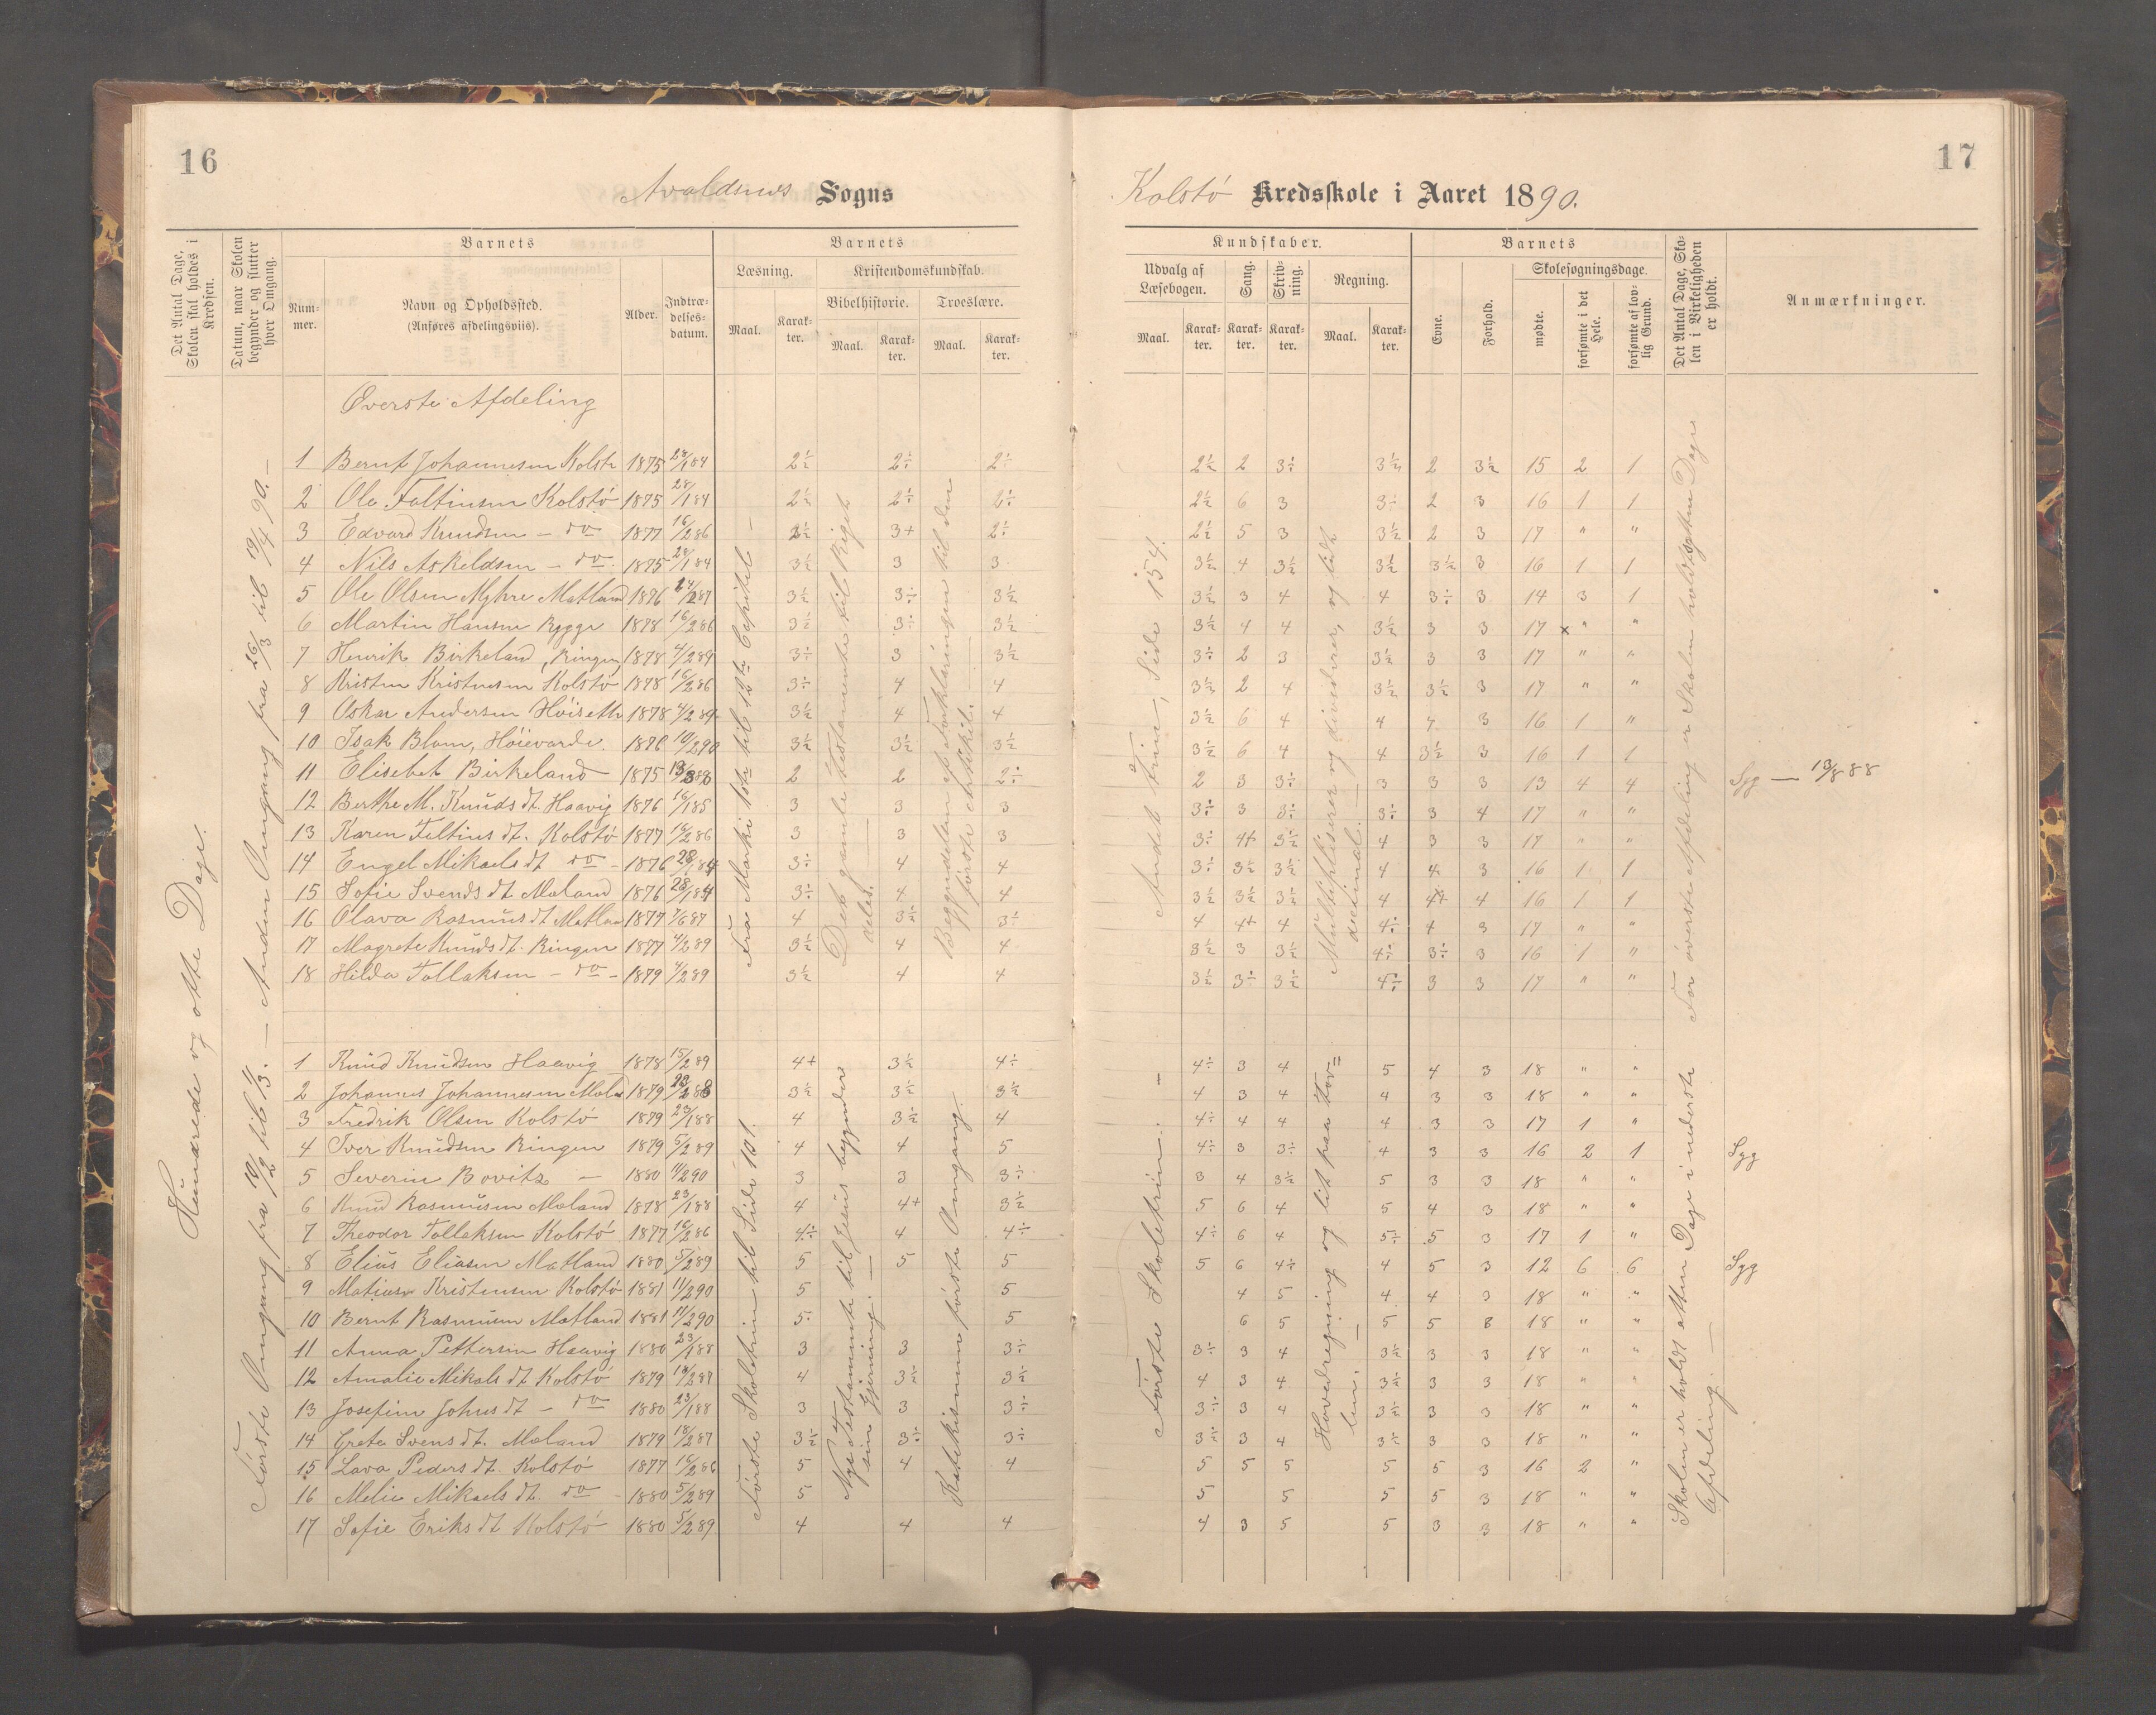 16
Avaldsnes Sogns
Det Antal Dage, Skolen skal holdes i Kredsen.
Datum, naar Skolen begynder og slutter hver Omgang.
Barnets
Nummer.
Navn og Opholdssted.
(Anføres afdelingsviis).
Alder.
Indtrædelsesdatum.
Barnets
Læsning.
Maal.
Karakter.
Kristendomskundskab.
Bibelhistorie.
Maal.
Karakter.
Troeslære.
Maal.
Karakter.
Hundrede og otte Dage.
Første Omgang fra 10/2 til 1/3. — Anden Omgang fra 26/3 til 19/4 90. —
Øverste Afdeling
1 Bernt Johannesen Kolstø 1875 28/1 84 2½ 2÷ 2÷
2 Ole Faltinsen Kolstø 1875 28/1 84 2½ 2÷ 2÷
3 Edvard Knudsen — do 1877 16/2 86 2½ 3+ 2÷
4 Nils Askeldsen — do. 1875 28/1 84 3½ 3 3
5 Ole Olsen Myhre Matland 1876 24/2 87 3½ 3÷ 3½
6 Martin Hansen Bygge 1878 16/2 86 3½ 3÷ 3½
7 Henrik Birkeland, Ringen 1878 4/2 89 3÷ 3 3½
8 Kristen Kristensen Kolstø 1878 16/2 86 3÷ 4 4
9 Oskar Andersen Høiseth 1878 4/2 89 3½ 4 4
10 Isak Blom, Høievarde. 1876 10/2 90 3½ 3½ 3½
11 Elisebet Birkeland 1875 2 2 2÷
12 Berthe M. Knuds dt. Haavig 1876 16/1 85 3 3 3
13 Karen Feltins dt. Kolstø 1877 16/2 86 3 3 3
14 Engel Mikaels dt do 1876 28/1 84 3÷ 4 4
15 Sofie Svends dt Moland 1876 28/1 84 3÷ 4 4
16 Olava Rasmus dt Matland 1877 7/6 87 4 3½ 3÷
17 Magrete Knuds dt. Ringen 1877 4/2 89 3½ 4 4
18 Hilda Tollaksen — do — 1879 4/2 89 3½ 4 4
Fra Marki 10de til 12te Capitel —
Det gamle Testamente til Rigets deling. —
Begyndelsen af Forklaringen til den første Artikel.
1 Knud Knudsen Haavig 1878 15/2 89 4+ 3½ 4÷
2 Johannes Johannesen Moland 1879 3½ 3½ 3½
3 Fredrik Olsen Kolstø 1879 23/1 88 4 3½ 4
4 Iver Knudsen Ringen 1879 5/2 89 4 4 5
5 Severin Bovitz — 1880 11/2 90 3 3 3÷
6 Knud Rasmusen Moland 1878 23/1 88 4 4+ 3½
7 Theodor Tollaksen Kolstø 1877 16/2 86 4÷ 4 4÷
8 Elius Eliasen Matland 1880 5/2 89 5 5 5
9 Matias Kristensen Kolstø 1881 11/2 90 5 5
10 Bernt Rasmusen Matland 1881 11/2 90 5÷ 5
11 Anna Pettersen Haavig 1880 23/1 88 3 3 3÷
12 Amalie Mikals dt Kolstø 1879 4 3½ 3½
13 Josefine Johns dt — do 1880 23/1 88 3 3 3÷
14 Grete Svens dt. Moland 1879 18/2 87 3½ 3÷ 3÷
15 Lava Peders dt. Kolstø 1877 16/2 86 5 4 4
16 Melie Mikaels dt. do — 1880 5/2 89 5
17 Sofie Eriks dt Kolstø 1880 5/2 89 4 4 4
Første Skoletrin til Side 101.
Nye Testamente til Jesus begynder sin Gjerning. —
Katekismen første Omgang.
17
Kolstø Kredsskole i Aaret 1890.
Kundskaber.
Udvalg af Læsebogen.
Maal.
Karakter.
Sang.
Karakter.
Skrivning.
Karakter.
Regning.
Maal.
Karakter.
Barnets
Evne.
Forhold.
Skolesøgningsdage.
mødte.
forsømte i det Hele.
forsømte af lovlig Grund.
Det Antal Dage, Skolen i Virkeligheden er holdt.
Anmærkninger.
2½ 2 3÷ 3½ 2 3½ 15 2 1
2½ 6 3 3÷ 2 3 16 1 1
2½ 5 3 3½ 2 3 17 " "
3½ 4 3½ 3½ 3½ 3 16 1 1
3½ 3 4 4 3÷ 3 14 3 1
3½ 4 4 3½ 3 3 17 × " "
3÷ 2 3 3½ 3 3 17 " "
3½ 2 4 3½ 3½ 3 17 " "
3½ 6 4 4 4 3 16 1 "
3½ 6 4 4 3½ 3 16 1 1
2 3 3÷ 3 3 3 13 4 4 Syg — 13/8 88
3÷ 3 3÷ 3÷ 3 4 17 " "
3÷ 4+ 3½ 4 3 3 17 " "
3÷ 3½ 3½ 4 4 3 16 1 1
3½ 3½ 3½ 4 4+ 4 16 1 1
4 4+ 4 4÷ 4 3 17 " "
3½ 3 3½ 4÷ 3÷ 3 16 1 "
3½ 3÷ 3½ 4÷ 3 3 17 " "
Andet Trin, Side 154.
Multipliserer og dividerer, og lidt decimal. —
For øverste Afdeling er Skolen holdt sytten Dage
4÷ 3 4 5 4 3 18 " "
4 3 4 4 3 3 18 " "
4÷ 4 4 4 3 3 17 1 "
4÷ 3 3÷ 4 3 3 16 2 1 Syg
3 4 3½ 5 3 3 18 " "
5 6 4 5 4 3 18 " "
4÷ 6 4 5÷ 5 3 17 1 "
5 6 4÷ 4 5 3 12 6 6 Syg
4 5 4 4 3 18 " "
6 5 5 5 3 18 " "
3÷ 3 4 3½ 3 3 18 " "
4 3 4 3½ 3 3 18 " "
3÷ 3 4 3½ 3 3 18 " "
3÷ 3 4 3½ 3 3 18 " "
5 5 5 5 5 3 16 2 "
5 5 5 5 3 18 " "
4 3 5 5 3 3 18 " "
Første Skoletrin. —
Hovedregning og lit paa Tavlen. —
Skolen er holdt atten Dage i nederste Afdeling. —